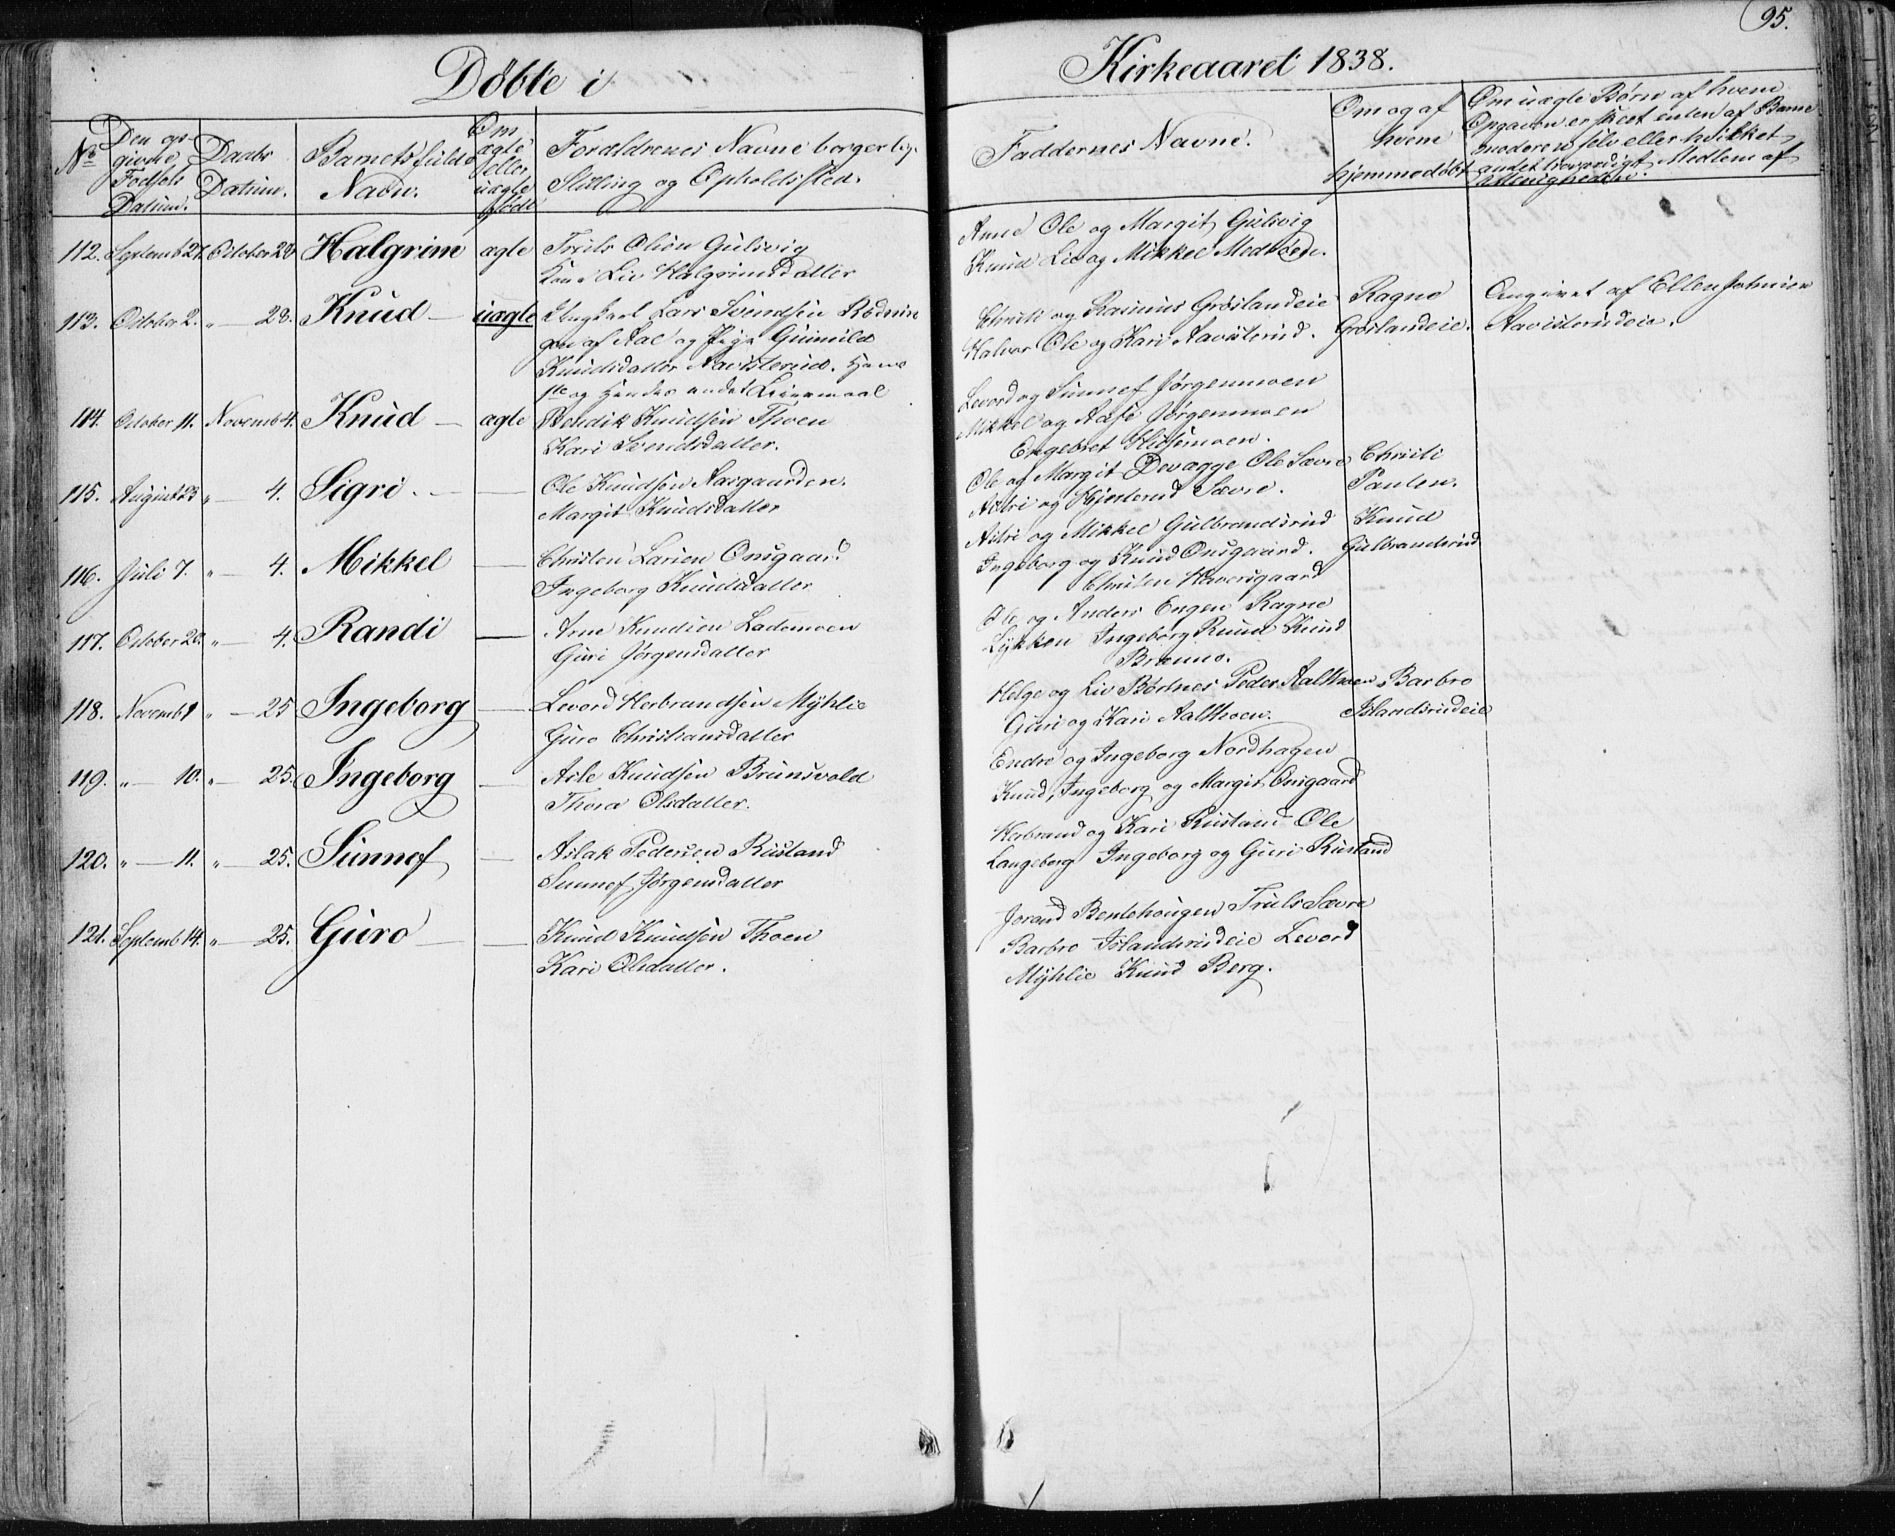 95.
Døbte i Kirkeaaret 1838.
No Den op-
givne
Fødsels
Datum.
Daabs
Datum.
Barnets fulde
Navn.
Om
ægte
eller
uægte
født
Forældrenes Navne borgerlige
Stilling og Opholdssted.
Faddernes Navne.
Om og af
hvem
hjemmedøbt
Om uægte Børn af hvem
Opgaven er skeet enten af Barne
moderen selv eller hvilket
andet troværdigt Medlem af
Almenigheden.
112. Septemb 27. October 28 Halgrim ægte Truls Olsön Gulsvig
Kone Liv Halgrimsdatter
Arne Ole og Margit Gulsvig
Knud Liv og Mikkel
113. October 2. " 28. Knud — uægte Ungkarl Lars Svendsen Rødnin
gen af Aal og Pige Gunnild
Knudsdatter Aavisterud. Hans
1te og Hendes andet Leiermaal
Christi og Rasmus Grøslandeie
Halvor Ole og Kari Aavisterud.
Ragne
Grøslandeie.
Angivet af Ellen Johnsen
Aavisterudeie.
114. October 11. Novemb 4. Knud — ægte Bendik Knudsen Thoen
Kari Svendsdatter.
Levord og Sunnef Jørgenmoen
Mikkel og Aase Jørgenmoen
Engebret
115. August 23 " — 4. Sigri. — — Ole Knudsen Aasgaarden.
Margit Knudsdatter
Ole og Margit Devegge Ole Sævre
Astri og Sævre.
Christi
Paulen.
116. Juli 7. " — 4. Mikkel — Christen Larsen Onsgaard
Ingeborg Knudsdatter
Astri og Mikkel Gulbrandsrud
Ingeborg og Knud Onsgaard.
Christen Haversgaard
Knud
Gulbrandsrud
117. October 20. " — 4. Randi — Arne Knudsen Lademoen
Guri Jørgensdatter
Ole og Anders Engen Ragne
Lykken Ingeborg Ruud Knud
Brænno.
118. Novemb 9 " — 25 Ingeborg — Levord Herbrandsen Myhlie
Guro Christiansdatter
Helge og Liv Børtnes Peder Aalthoen
Guri og Kari Aalthoen.
Barbro
Islandsrudeie
119. " — 10. " — 25. Ingeborg — Asle Knudsen Brunsvold
Thora Olsdatter.
Endre og Ingeborg Nordhagen
Knud, Ingeborg og Margit Onsgaard
120. " — 11. " — 25. Sunnef — Aslak Pedersen Rustand
Sunnef Jørgensdatter
Herbrand og Kari Rustand Ole
Langeberg Ingeborg og Guri Rustand
121. Septemb 14. " — 25. Guro — — Knud Knudsen Thoen
Kari Olsdatter.
Jorand Bentehaugen Truls Sævre
Barbro Islandsrudeie Levord
Myhlie Knud Berg.